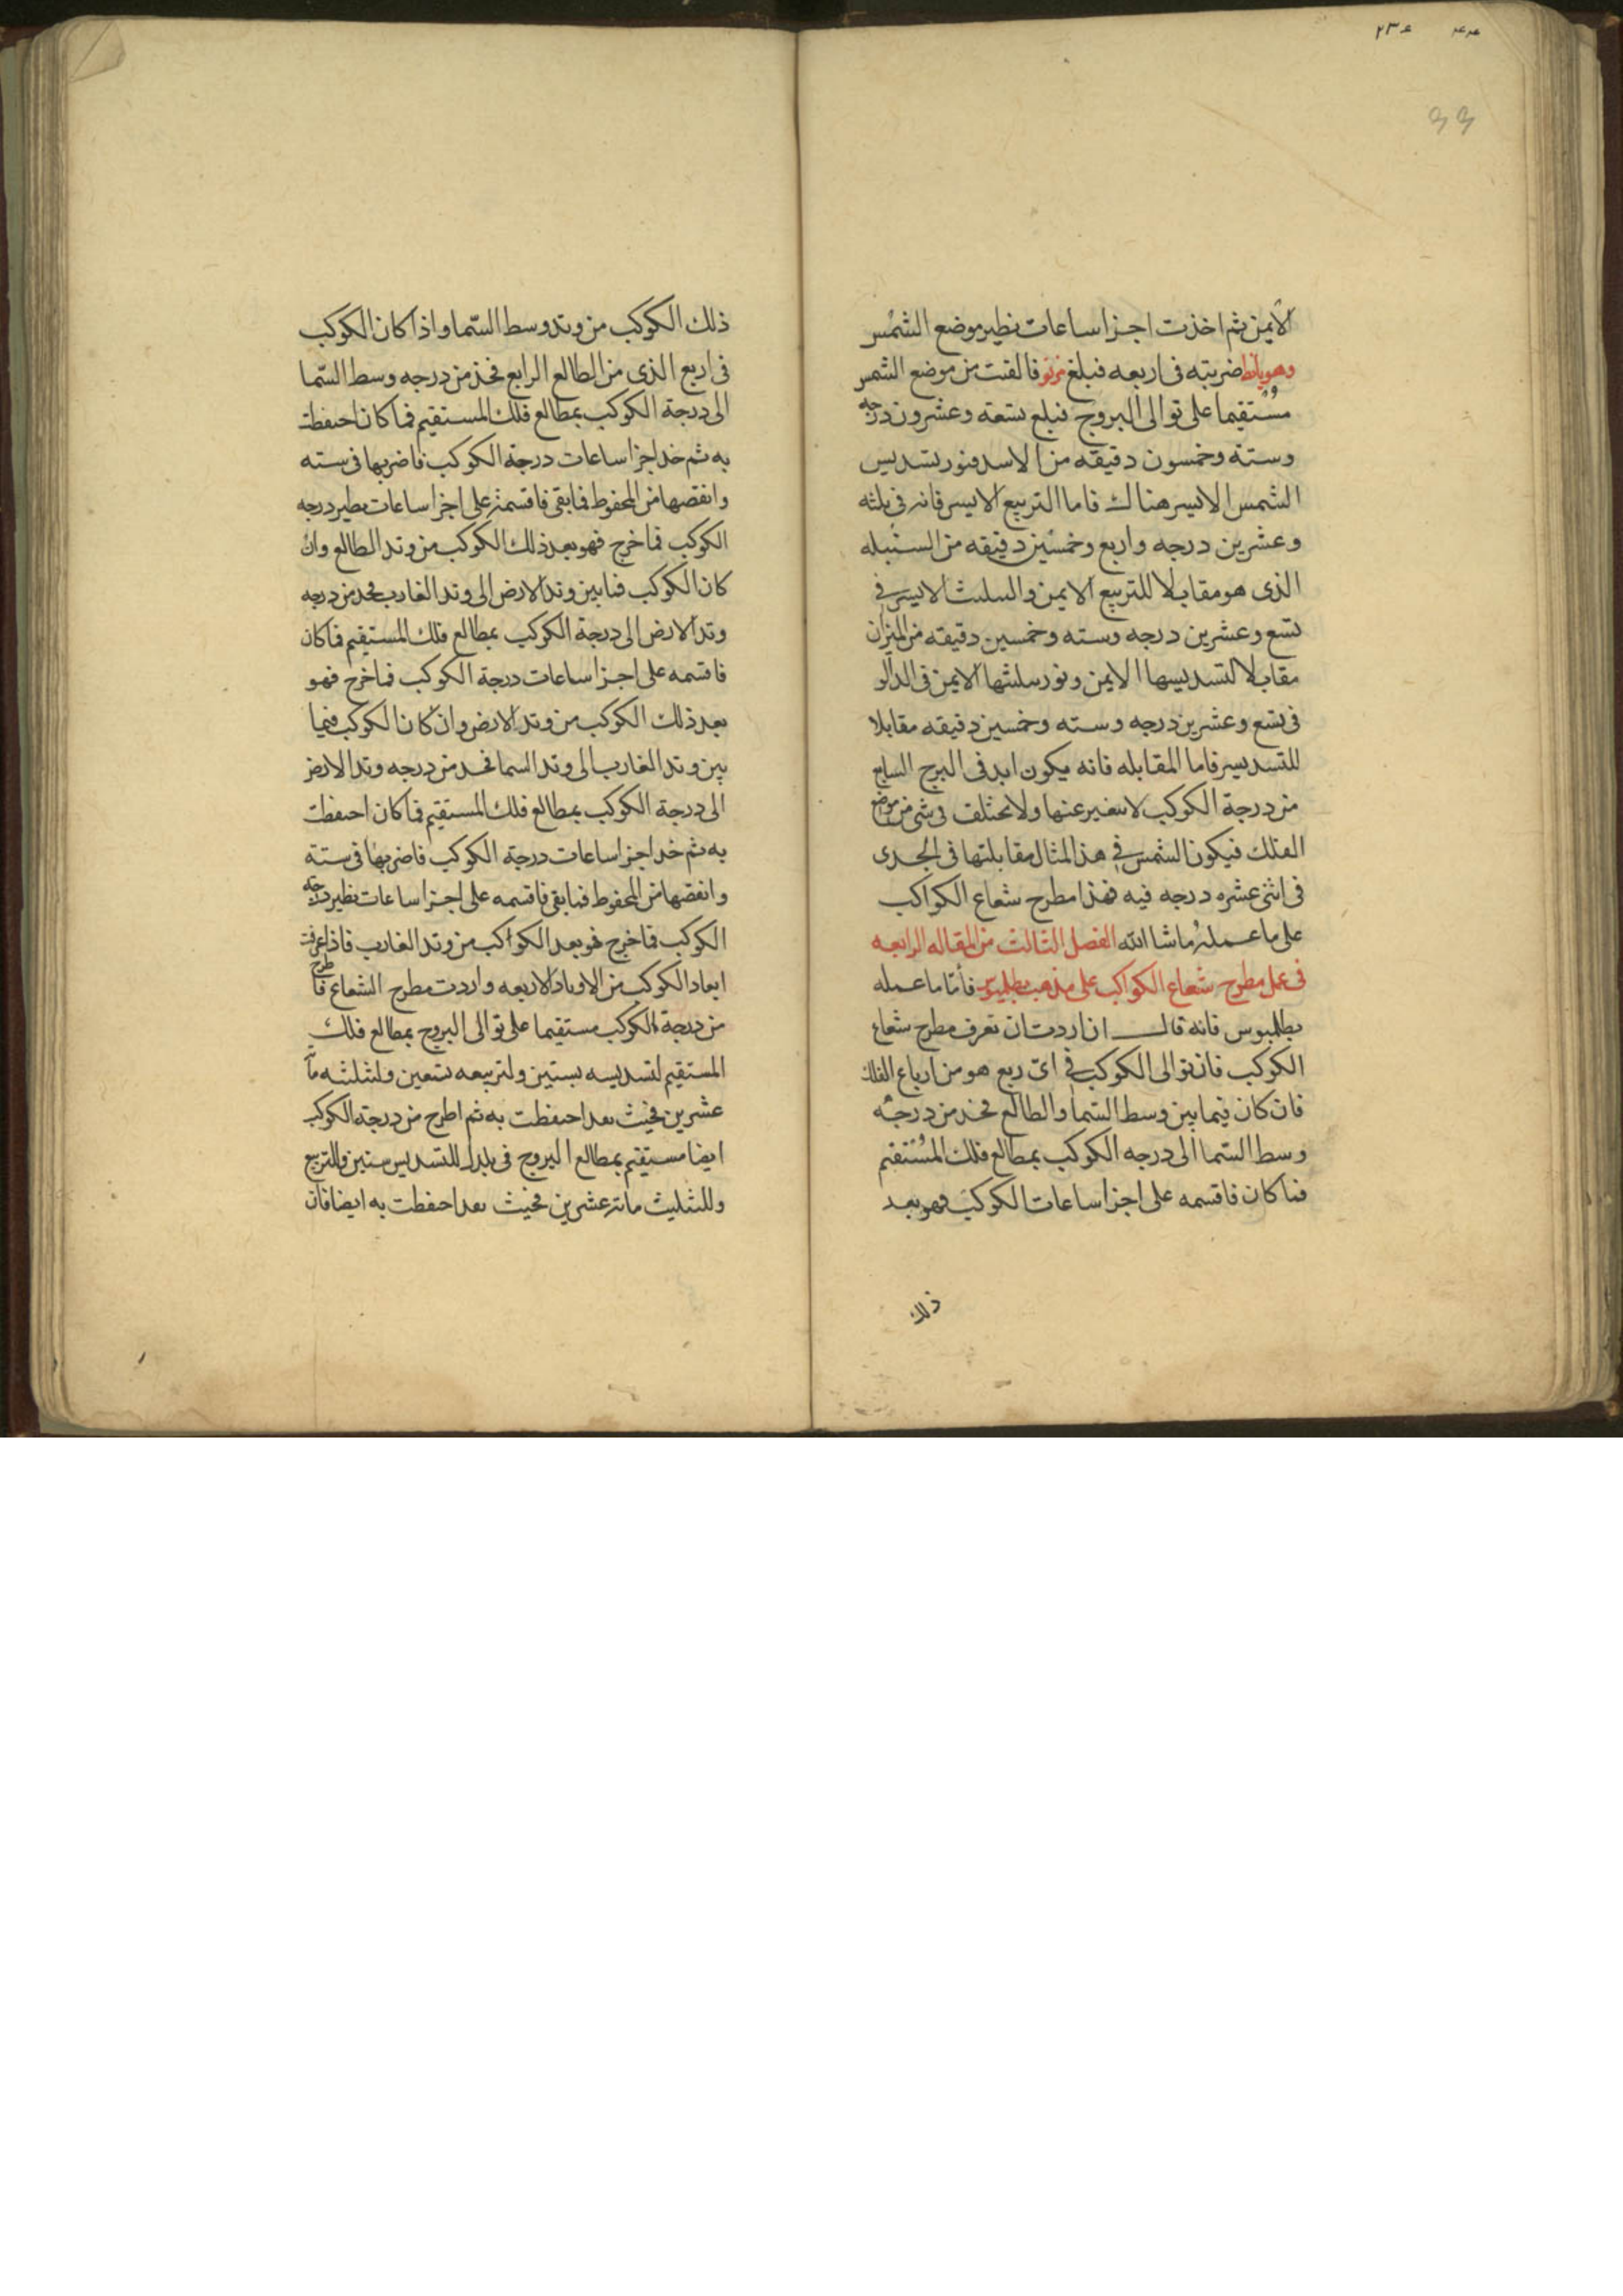 ٢٣٤ ٤٤
الايمن ثم اخذت اجزا ساعات نظير موضع الشمس
وهو يا نط ضربته فى اربعه فبلغ مز نو فالقيت من موضع الشمس
مستقيما على توالى البروج فبلغ تسعة وعشرون درجه
وستة وخمسون دقيقه من الاسد فنور تسديس
الشمس الايسر هناك فاما التربيع الايسر فانه فى ثلثه
وعشرين درجه واربع وخمسين دقيقه من السنبله
الذى هو مقابلا للتربيع الايمن والتثليث الايسر فى
تسع وعشرين درجه وسته وخمسين دقيقه من الميزان
مقابلا لتسديسها الايمن ونور تثليثها الايمن فى الدالو
فى تسع وعشرين درجه وسته وخمسين دقيقه مقابلا
للتسديس فاما المقابله فانه يكون ابد فى البرج السابع
من درجة الكوكب لا يتغير عنها ولا تختلف فى شى من موضع
الفلك فيكون الشمس فى هذا المثال مقابلتها فى الجدى
فى اثنى عشره درجه فيه فهذا مطرح شعاع الكواكب
على ما عمله ماشا الله الفصل الثالث من المقاله الرابعه
فى عمل مطرح شعاع الكواكب على مذهب بطلميوس فأمّا ما عمله
بطلميوس فانه قال ان اردت ان تعرف مطرح شعاع
الكوكب فان توالى الكوكب فى اىّ ربع هو من ارباع الفلك
فان كان فيما بين وسط السّما والطالع فخذ من درجه
وسط السّما الى درجه الكوكب بمطالع فلك المستقيم
فما كان فاقسمه على اجزا ساعات الكوكب فهو بعد
ذلك
ذلك الكوكب من وتد وسط السّما واذا كان الكوكب
فى اربع الذى من الطالع الرابع فخذ من درجه وسط السّما
الى درجة الكوكب بمطالع فلك المستقيم فما كان احتفظت
به ثم خذ اجزا ساعات درجة الكوكب فاضربها فى سته
وانقصها من المحفوظ فما بقى فاقسمه على اجزا ساعات نظير درجه
الكوكب فما خرج فهو بعد ذلك الكوكب من وتد الطالع وان
كان الكوكب فما بين وتد الارض الى وتد الغارب فخذ من درجه
وتد الارض الى درجة الكوكب بمطالع فلك المستقيم فما كان
فاقسمه على اجزا ساعات درجة الكوكب فما خرج فهو
بعد ذلك الكوكب من وتد الارض وان كان الكوكب فيما
بين وتد الغارب الى وتد السما فخذ من درجه وتد الارض
الى درجة الكوكب بمطالع فلك المستقيم فما كان احتفظت
به ثم خذ اجزا ساعات درجة الكوكب فاضربها فى ستة
وانقصها من المحفوظ فما بقى فاقسمه على اجزا ساعات نظير درجه
الكوكب فما خرج فهو بعد الكواكب من وتد الغارب فاذا عرفت
ابعاد الكوكب من الاوتاد الاربعه واردت مطرح الشعاع فاطرح
من درجة الكوكب مستقيما على توالى البروج بمطالع فلك
المستقيم لتسديسه بستين ولتربيعه تسعين ولتثليثه مأ
عشرين فحيث نفد احتفظت به ثم اطرح من درجة الكوكب
ايضا مستقيم بمطالع البروج فى بلدك للتسديس ستين وللتربيع
وللتثليث مائه عشرين فحيث نفد احفظت به ايضا فان